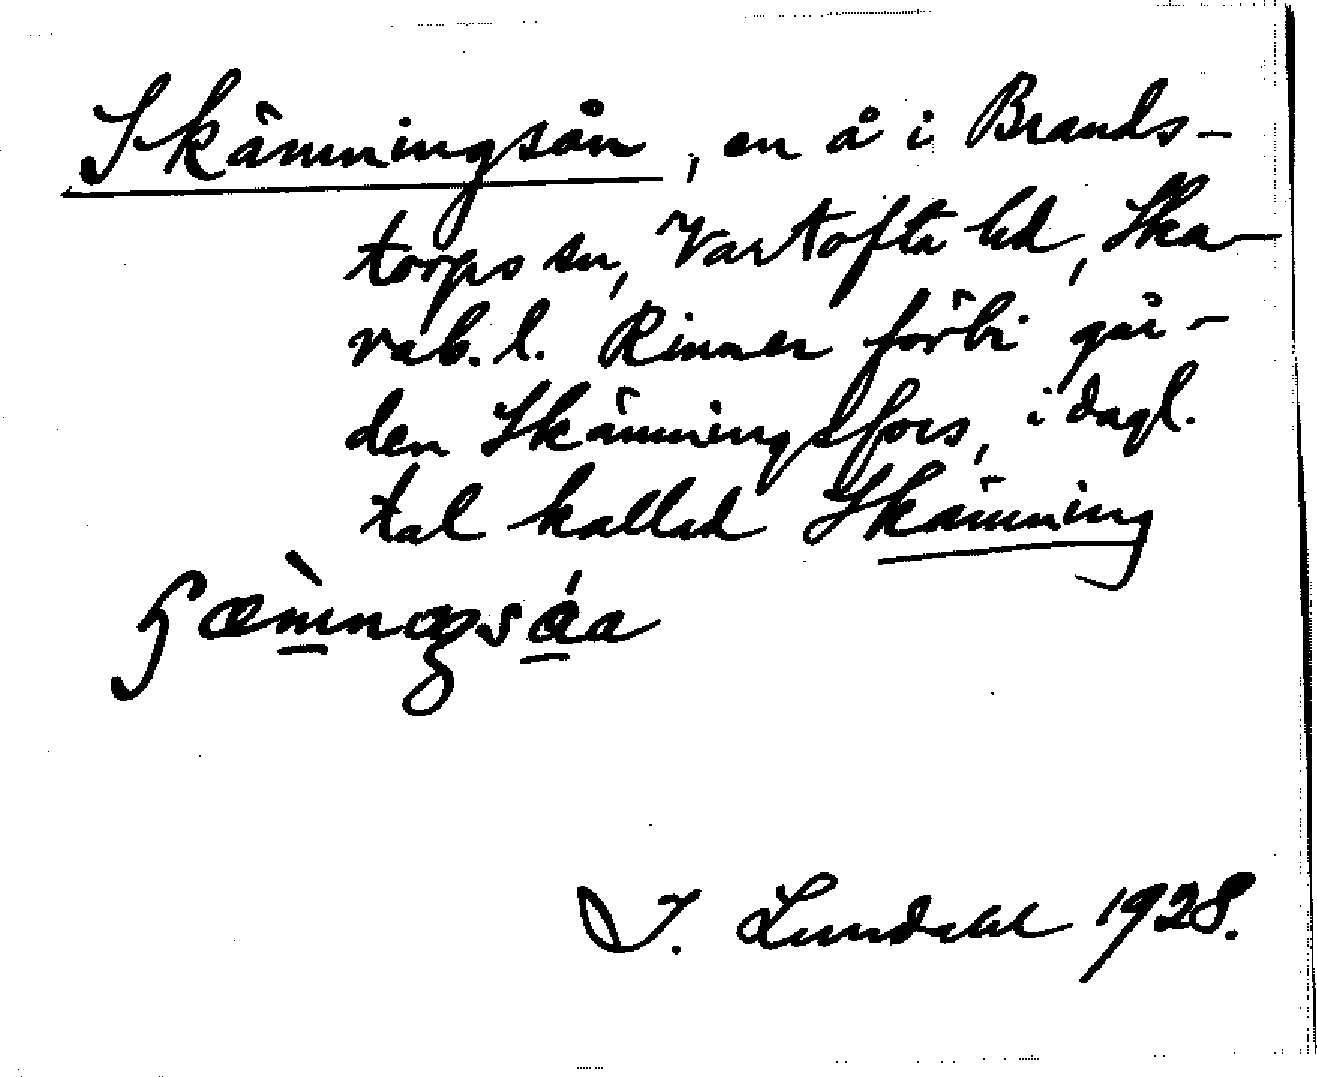 Skämningsån, en å i Brands-
torps sn, Vartofta hd, Ska-
rab. l. Rinner förbi går-
den Skämningsfors, i dagl.
tal kallad Skämning
I. Lundahl 1928.